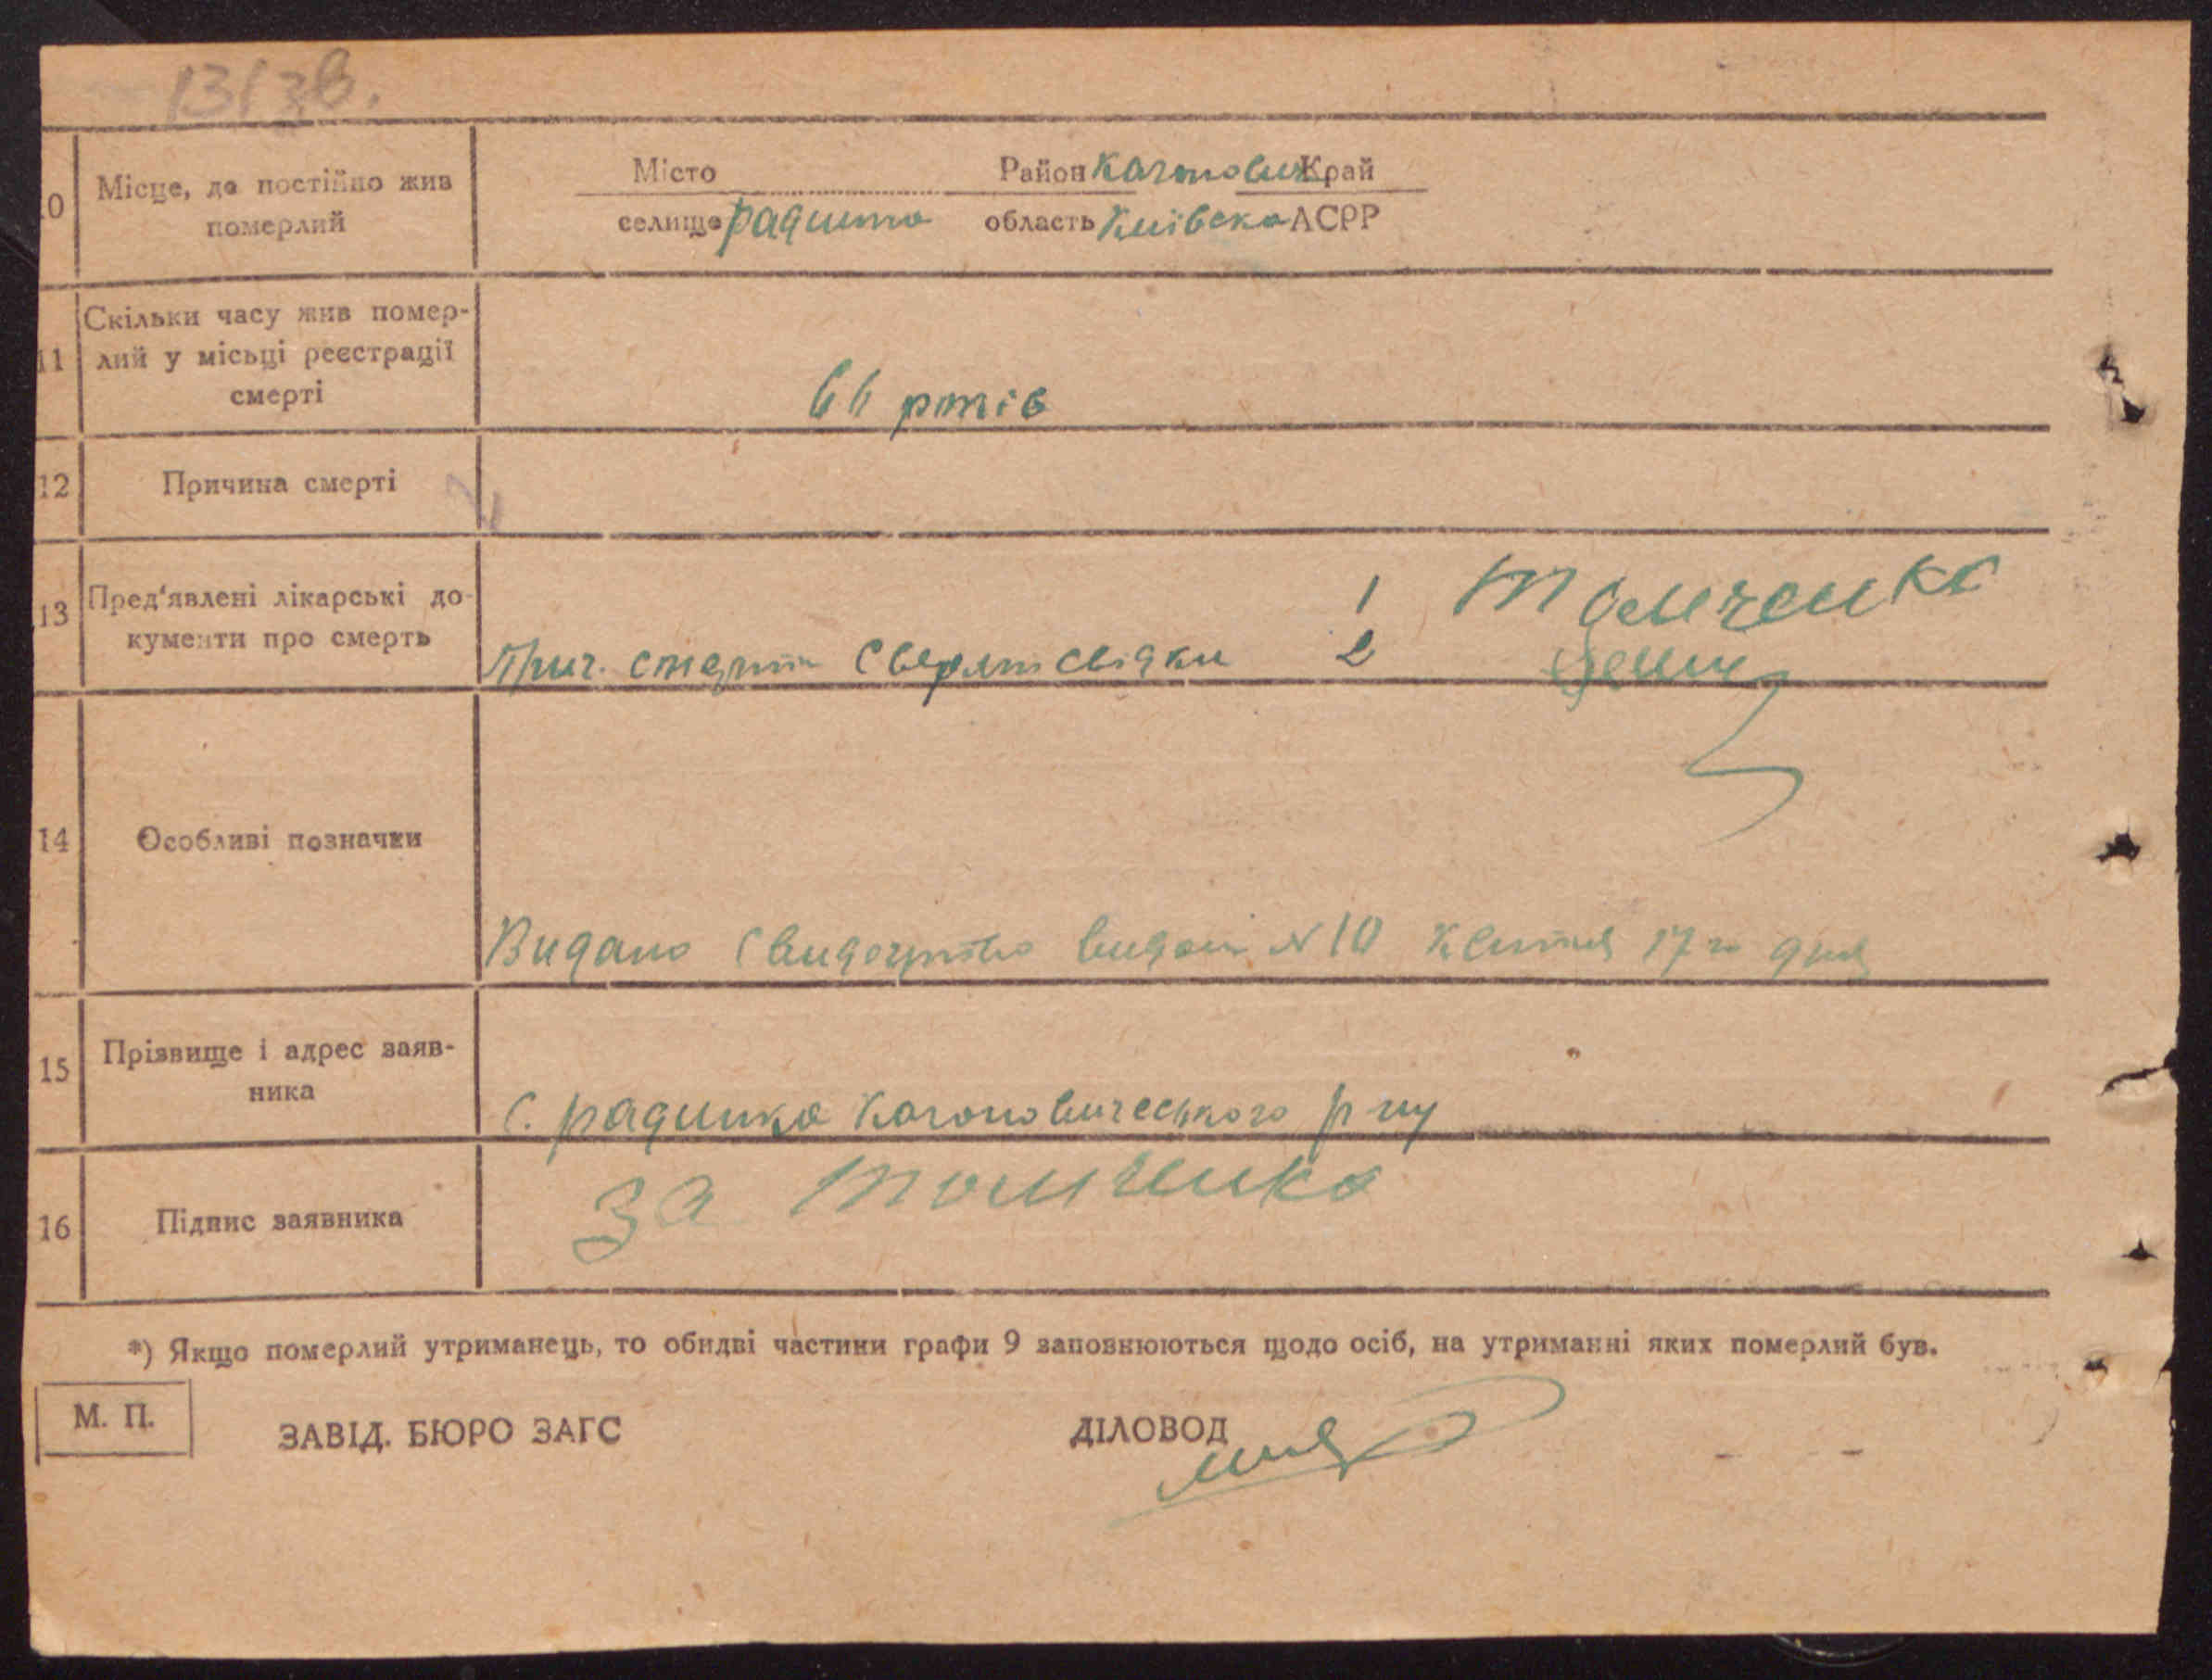 10 Місце, де постійно жив померлий
Місто Район Каганович Край
селище Радинка область Київска АСРР
11 Скільки часу жив помер-
лий у місьці реєстрації
смерті
66 років
12 Причина смерті
13 Пред'явлені лікарські до-
кументи про смерть
Прич. смерти свідки 1 Томченко
2
14 Особливі позначки
Видано N 10 квітня 17 го дня
15 Прізвище і адрес заяв-
ника
с. Радинка Кагановического р-ну
16 Підпис заявника
За Томченко
*) Якщо померлий утриманець, то обидві частини графи 9 заповнюються щодо осіб, на утриманні яких померлий був.
М. П.
ЗАВІД. БЮРО ЗАГС ДІЛОВОД